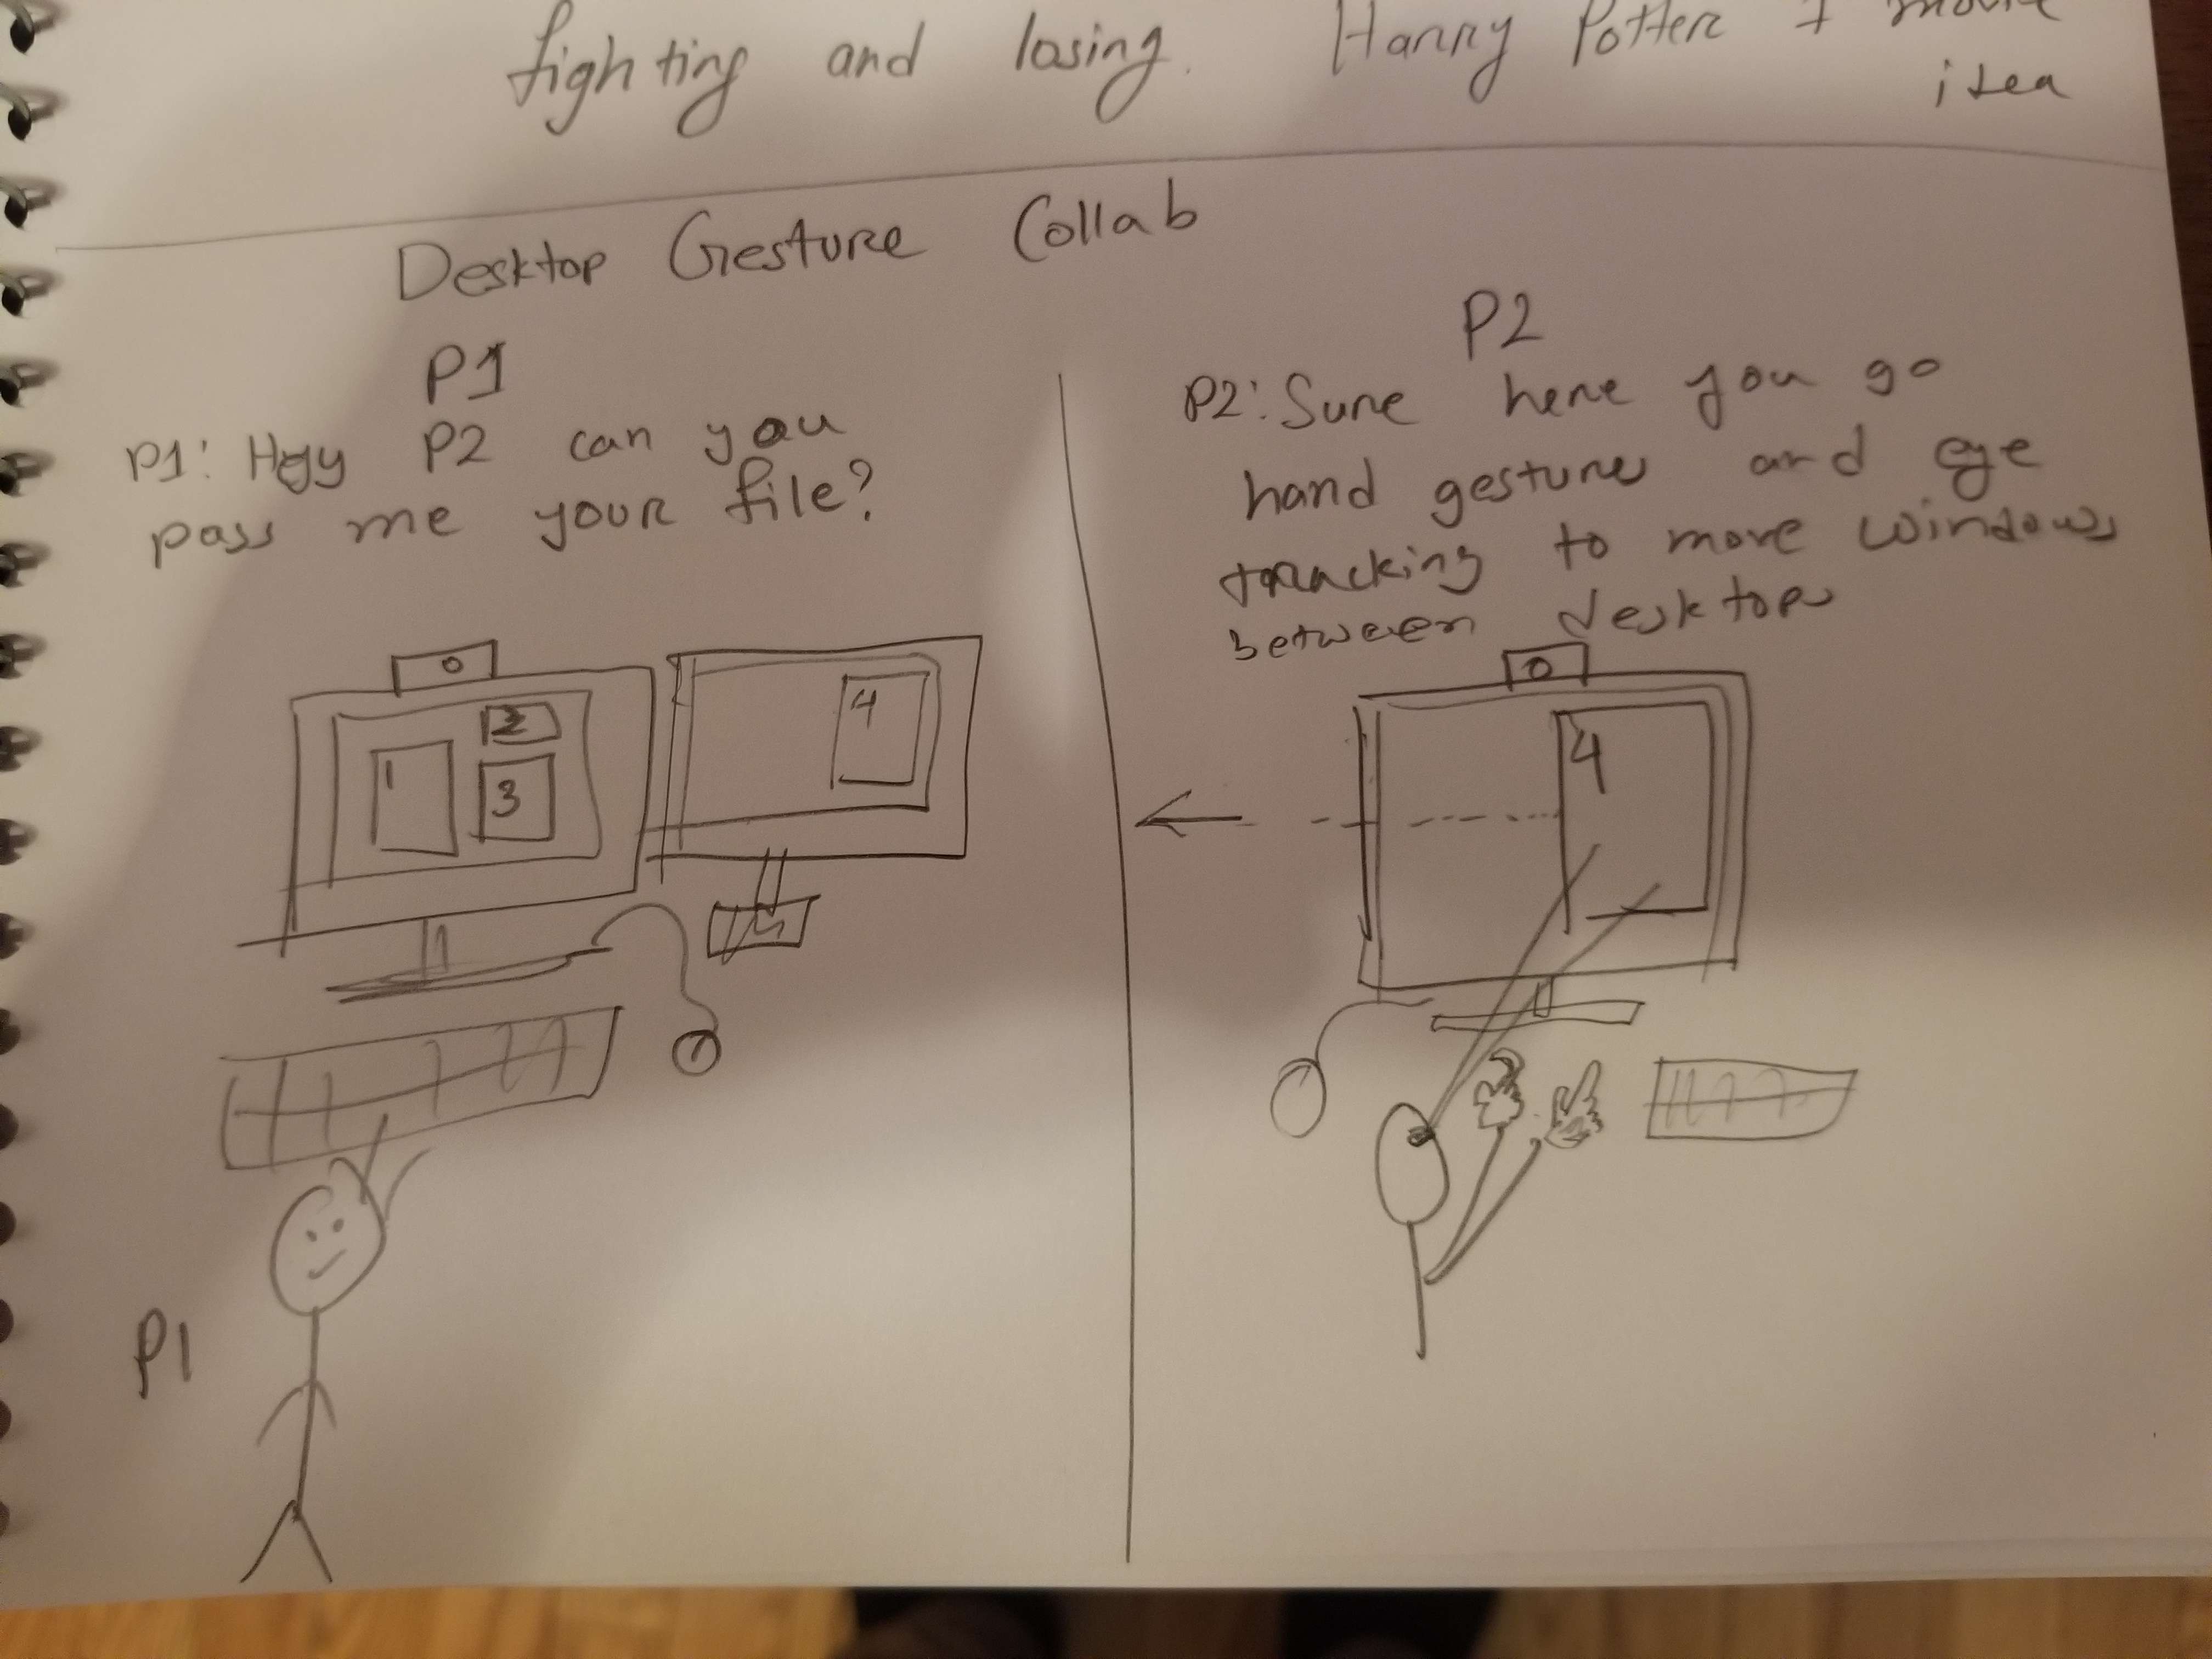 fighting and losing. Harry Potter + movie
idea
Desktop Gesture Collab
P1
P1: Hey P2 can you
pass me your file?
1
2
3
4
P1
P2
P2: Sure here you go
hand gestures and eye
tracking to move windows
between desktops
4